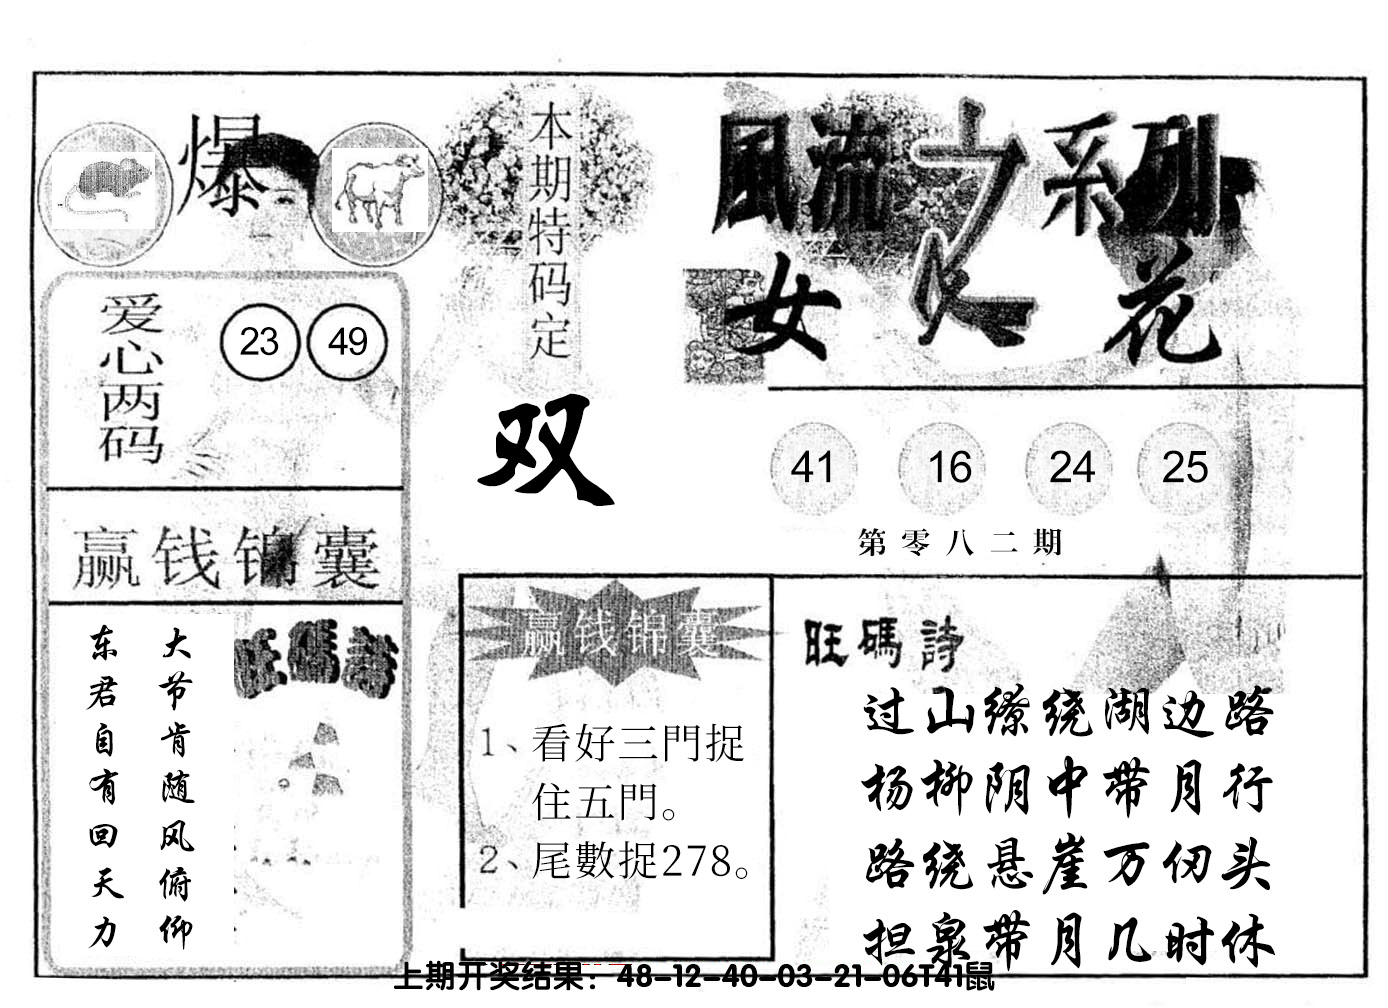 爆
本期特码定
双
風流之系列
女人花
爱心两码
23 49
41 16 24 25
第零八二期
赢钱锦囊
旺碼詩
大节肯随风俯仰
东君自有回天力
赢钱锦囊
1、看好三門捉
住五門。
2、尾數捉278。
旺碼詩
过山缭绕湖边路
杨柳阴中带月行
路绕悬崖万仞头
担泉带月几时休
上期开奖结果：48-12-40-03-21-06T41鼠